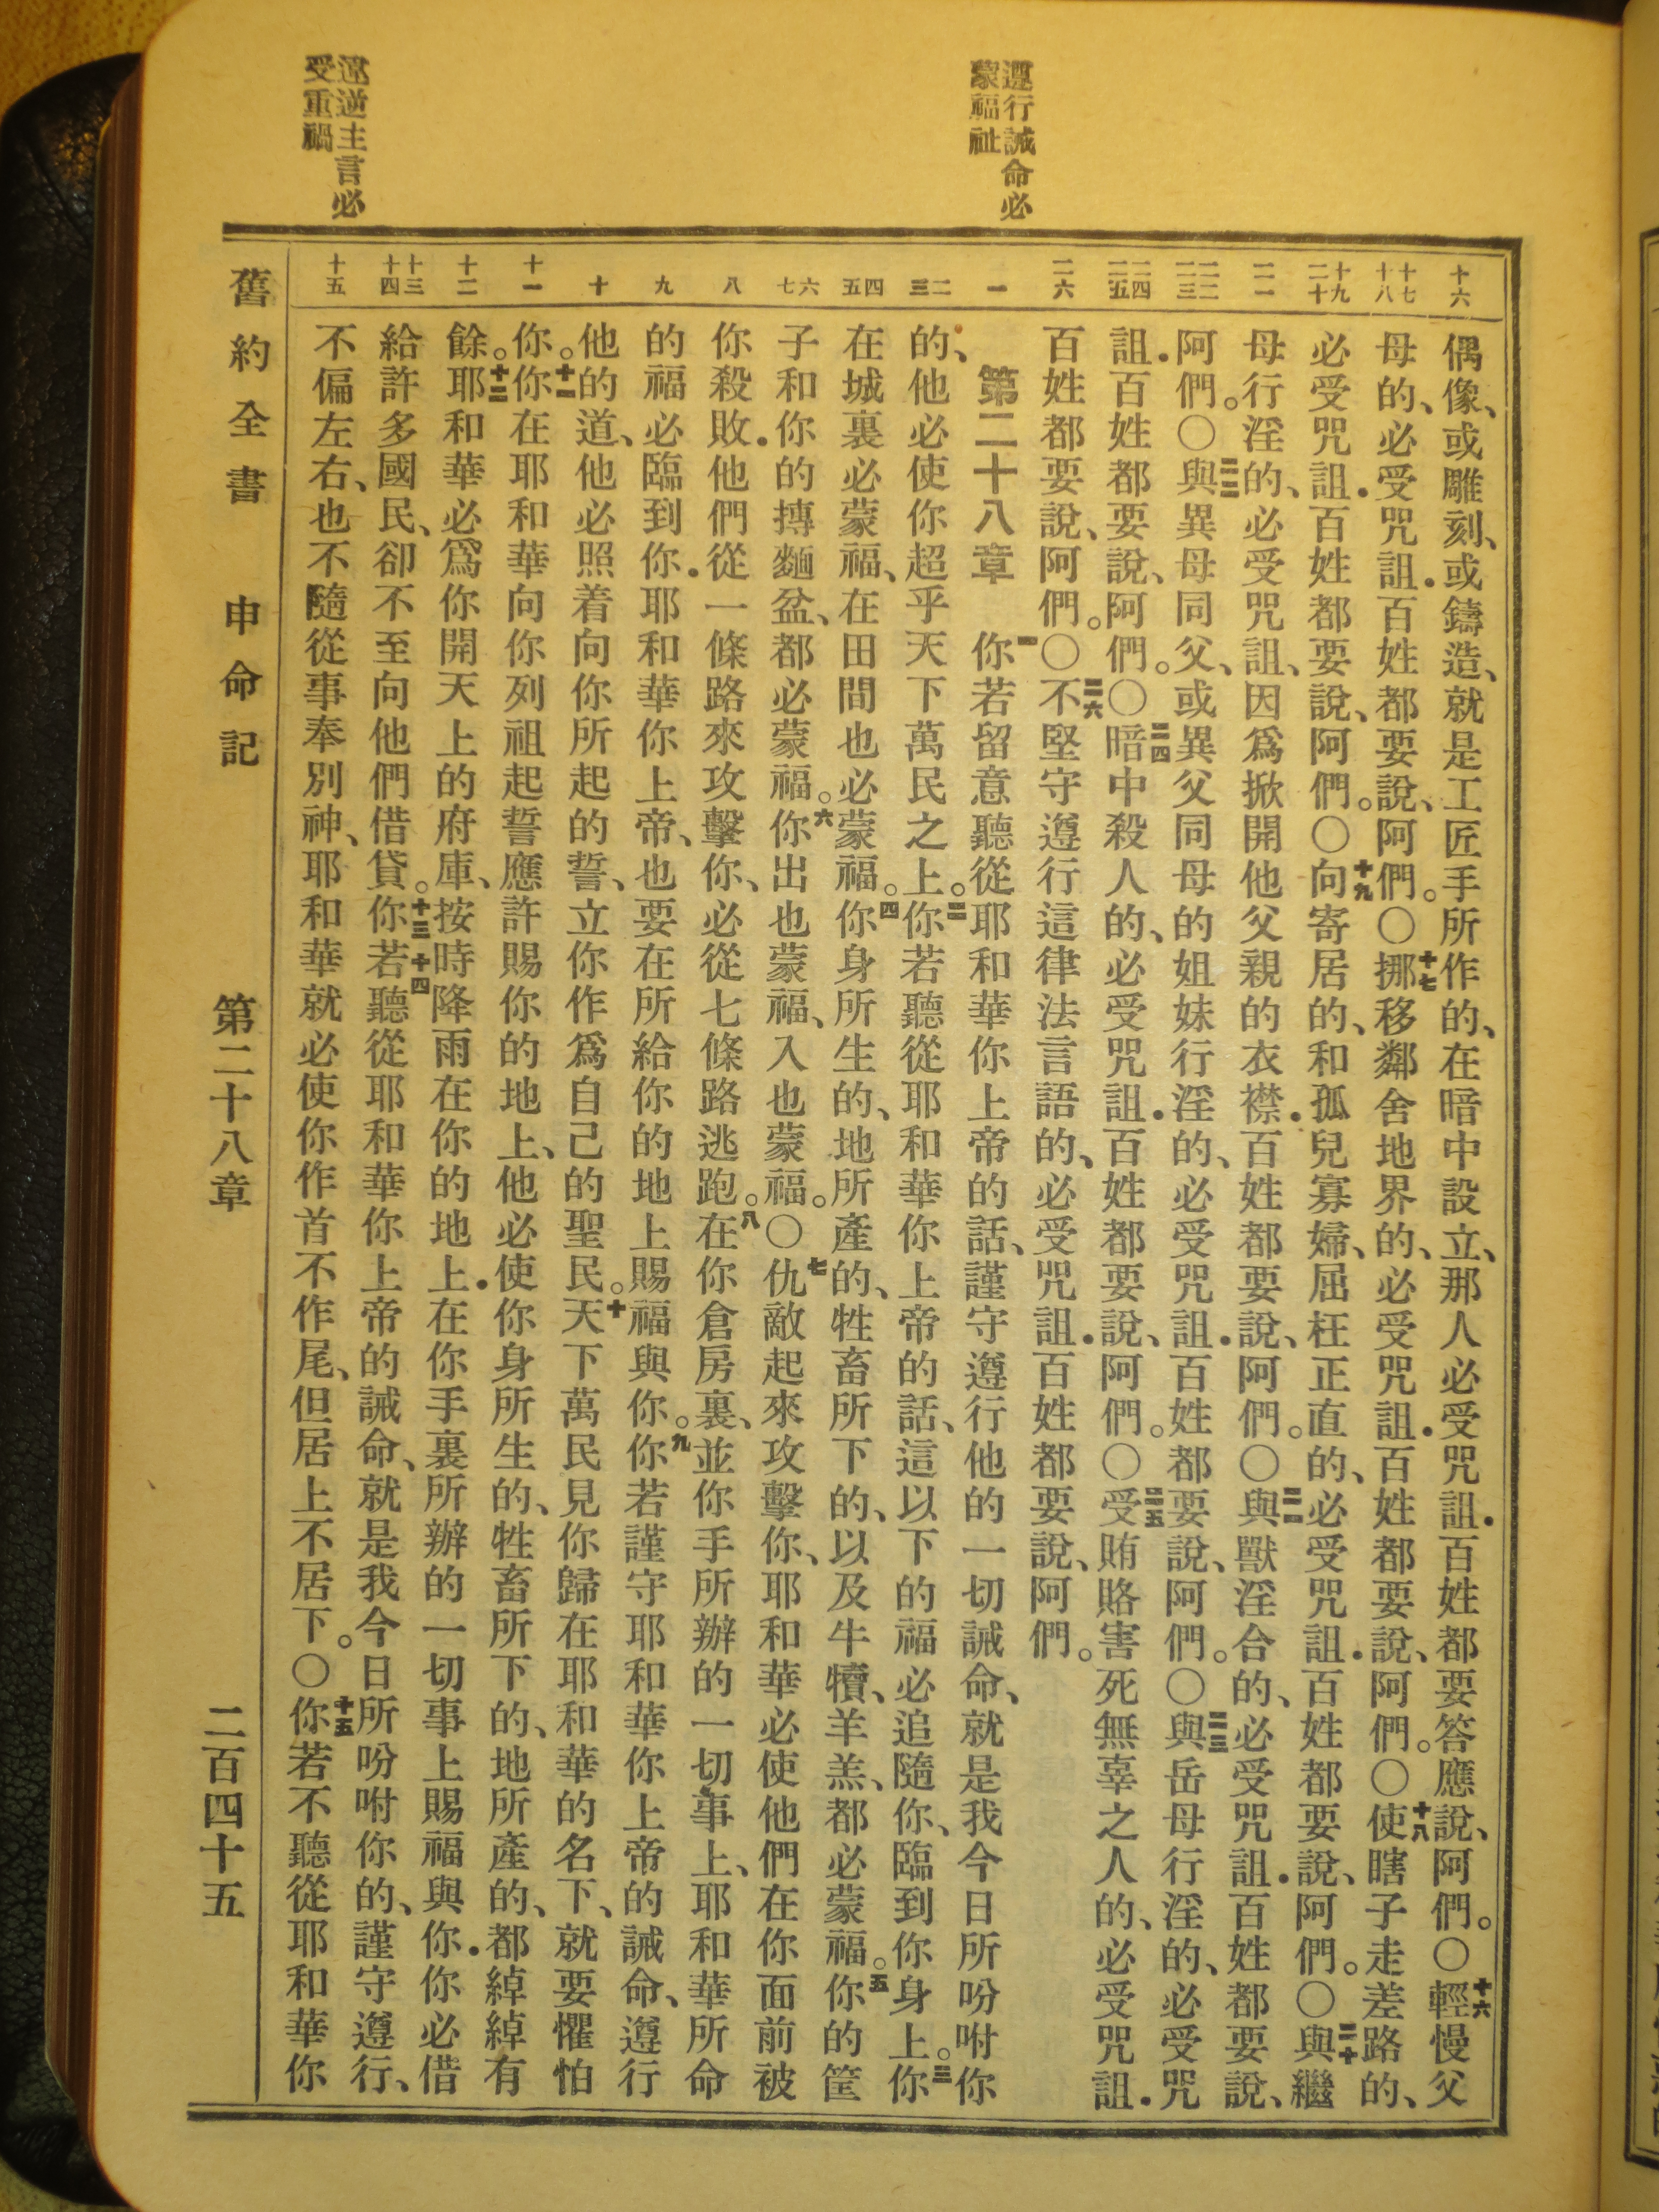 遵行誡命必
蒙福祉
違逆主言必
受重禍
十六
十七
十八
十九
二十
二一
二二
二三
二四
二五
二六
一
二
三
四
五
六
七
八
九
十
十一
十二
十三
十四
十五
偶像、或雕刻、或鑄造、就是工匠手所作的、在暗中設立、那人必受咒詛．百姓都要答應說、阿們。〇十六輕慢父
母的、必受咒詛．百姓都要說、阿們。〇十七挪移鄰舍地界的、必受咒詛．百姓都要說、阿們。〇十八使瞎子走差路的、
必受咒詛．百姓都要說、阿們。〇十九向寄居的、和孤兒寡婦、屈枉正直的、必受咒詛．百姓都要說、阿們。〇二十與繼
母行淫的、必受咒詛、因爲掀開他父親的衣襟．百姓都要說、阿們。〇二一與獸淫合的、必受咒詛．百姓都要說、
阿們。〇二二與異母同父、或異父同母的姐妹行淫的、必受咒詛．百姓都要說、阿們。〇二三與岳母行淫的、必受咒
詛．百姓都要說、阿們。〇二四暗中殺人的、必受咒詛．百姓都要說、阿們。〇二五受賄賂害死無辜之人的、必受咒詛．
百姓都要說、阿們。〇二六不堅守遵行這律法言語的、必受咒詛．百姓都要說、阿們。
第二十八章 一你若留意聽從耶和華你上帝的話、謹守遵行他的一切誡命、就是我今日所吩咐你
的、他必使你超乎天下萬民之上。二你若聽從耶和華你上帝的話、這以下的福必追隨你、臨到你身上。三你
在城裏必蒙福、在田間也必蒙福。四你身所生的、地所產的、牲畜所下的、以及牛犢、羊羔、都必蒙福。五你的筐
子和你的摶麵盆、都必蒙福。六你出也蒙福、入也蒙福。〇七仇敵起來攻擊你、耶和華必使他們在你面前被
你殺敗．他們從一條路來攻擊你、必從七條路逃跑。八在你倉房裏、並你手所辦的一切事上、耶和華所命
的福必臨到你．耶和華你上帝、也要在所給你的地上賜福與你。九你若謹守耶和華你上帝的誡命、遵行
他的道、他必照着向你所起的誓、立你作爲自己的聖民。十天下萬民見你歸在耶和華的名下、就要懼怕
你。十一你在耶和華向你列祖起誓應許賜你的地上、他必使你身所生的、牲畜所下的、地所產的、都綽綽有
餘。十二耶和華必爲你開天上的府庫、按時降雨在你的地上．在你手裏所辦的一切事上賜福與你．你必借
給許多國民、卻不至向他們借貸。十三十四你若聽從耶和華你上帝的誡命、就是我今日所吩咐你的、謹守遵行、
不偏左右、也不隨從事奉別神、耶和華就必使你作首不作尾、但居上不居下。〇十五你若不聽從耶和華你
舊約全書 申命記 第二十八章 二百四十五